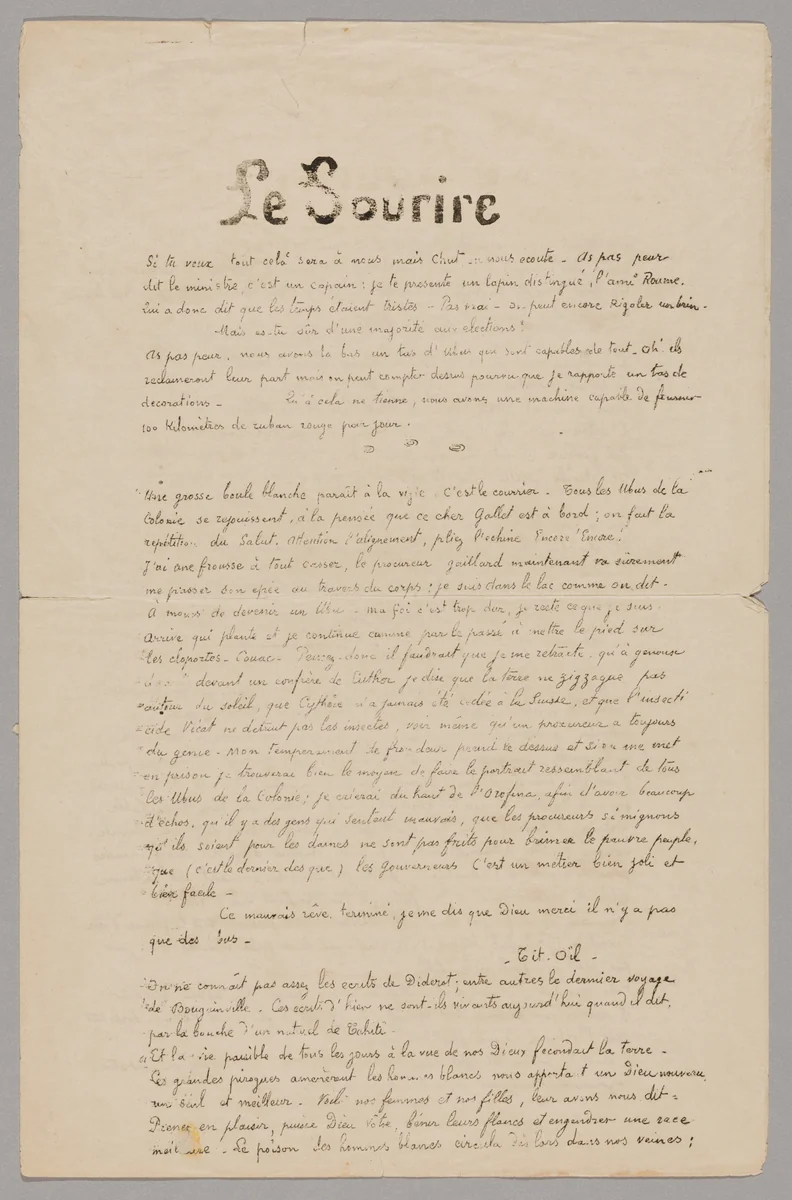 Le Sourire
Si tu veux tout celà sera à nous mais Chut on nous ecoute - As pas peur
dit le ministre, c'est un copain : je te presente un lapin distingué, l'ami Roume.
Qui a donc dit que les temps étaient tristes - Pas vrai - on peut encore Rigoler un brin -
Mais es-tu sûr d'une majorité aux elections?
As pas peur, nous avons là bas un tas d'Ubus qui sont capables de tout - Oh! ils
reclameront leur part mais on peut compter dessus pourvu que je rapporte un tas de
decorations - Qu'à cela ne tienne, nous avons une machine capable de fournir
100 Kilomètres de ruban rouge par jour.
Une grosse boule blanche paraît à la vigie. C'est le courrier - Tous les Ubus de la
Colonie se rejouissent, à la pensée que ce cher Gallet est à bord ; on fait la
repetition du Salut. Attention l'alignement, pliez l'echine Encore Encore!
J'ai une frousse à tout casser, le procureur gaillard maintenant va sûrement
me passer son epée au travers du corps : je suis dans le lac comme on dit -
À moins de devenir un Ubu - ma foi c'est trop dur, je reste ce que je suis.
Arrive qui plante et je continue comme par le passé à mettre le pied sur
les cloportes - Couac - Pensez donc il faudrait que je me retracte, qu'à genoux
devant un confrère de Luther je dise que la terre ne zigzague pas
autour du soleil, que Cythère n'a jamais été cedée à la Suisse, et que l'insecti
cide Vicat ne detruit pas les insectes, voir même qu'un procureur a toujours
du genie - Mon temperament de frondeur prend le dessus et si on me met
en prison je trouverai bien le moyen de faire le portrait ressemblant de tous
les Ubus de la Colonie ; je crierai du haut de l'Orofina, afin d'avoir beaucoup
d'échos, qu'il y a des gens qui sentent mauvais, que les procureurs si mignons
qu'ils soient pour les dames ne sont pas faits pour brimer le pauvre peuple,
que (c'est le dernier des que) les Gouverneurs C'est un métier bien joli et
bien facile -
Ce mauvais rêve, terminé, je me dis que Dieu merci il n'y a pas
que des Ubus -
- Tit. Oïl -
On ne connaît pas assez les ecrits de Diderot ; entre autres le dernier voyage
de Bougainville - Ces ecrits d'hier ne sont-ils vivants aujourd'hui quand il dit,
par la bouche d'un naturel de Tahiti -
Et la vie paisible de tous les jours à la vue de nos Dieux fecondait la terre -
Les grandes pirogues amenèrent les hommes blancs nous apportant un Dieu nouveau,
un seul et meilleur - Voilà nos femmes et nos filles, leur avons nous dit -
Prenez en plaisir, puisse Dieu vôtre, bénir leurs flancs et engendrer une race
meilleure - Le poison des hommes blancs circula dès lors dans nos veines ;